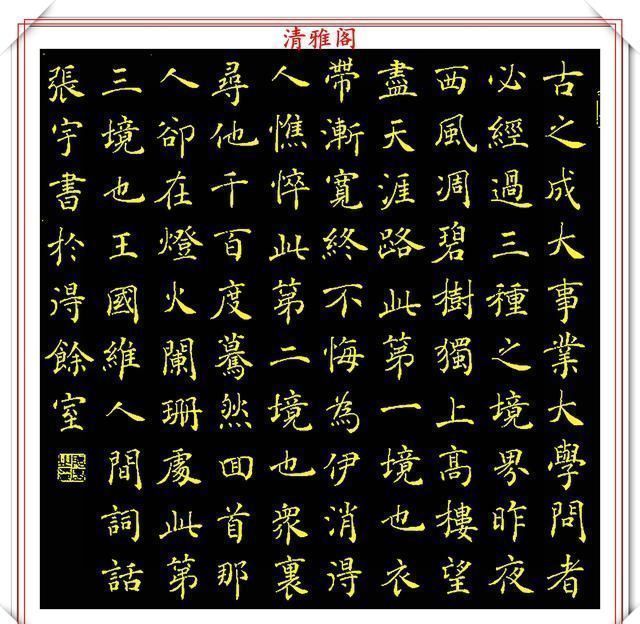 清雅阁
古之成大事業大學問者
必經過三種之境界昨夜
西風凋碧樹獨上高樓望
盡天涯路此第一境也衣
帶漸寬終不悔為伊消得
人憔悴此第二境也衆裏
尋他千百度驀然回首那
人卻在燈火闌珊處此第
三境也王國維人間詞話
張宇書於得餘室